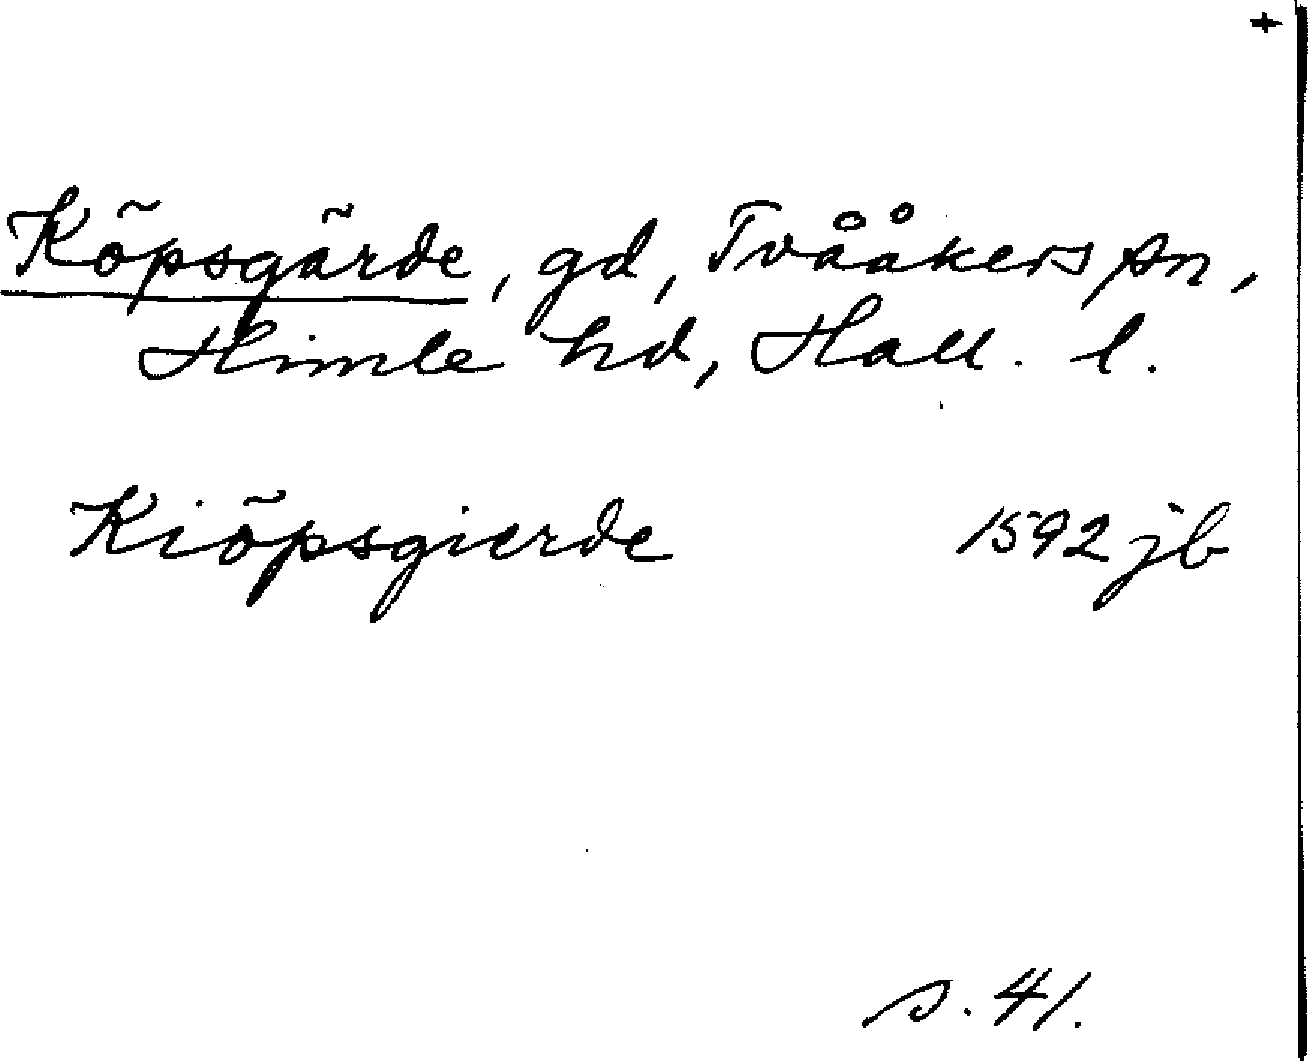 +
Köpsgärde, gd, Tvååkers sn,
Himle hd, Hall. l.
Kiöpsgierde 1592 jb
s. 41.